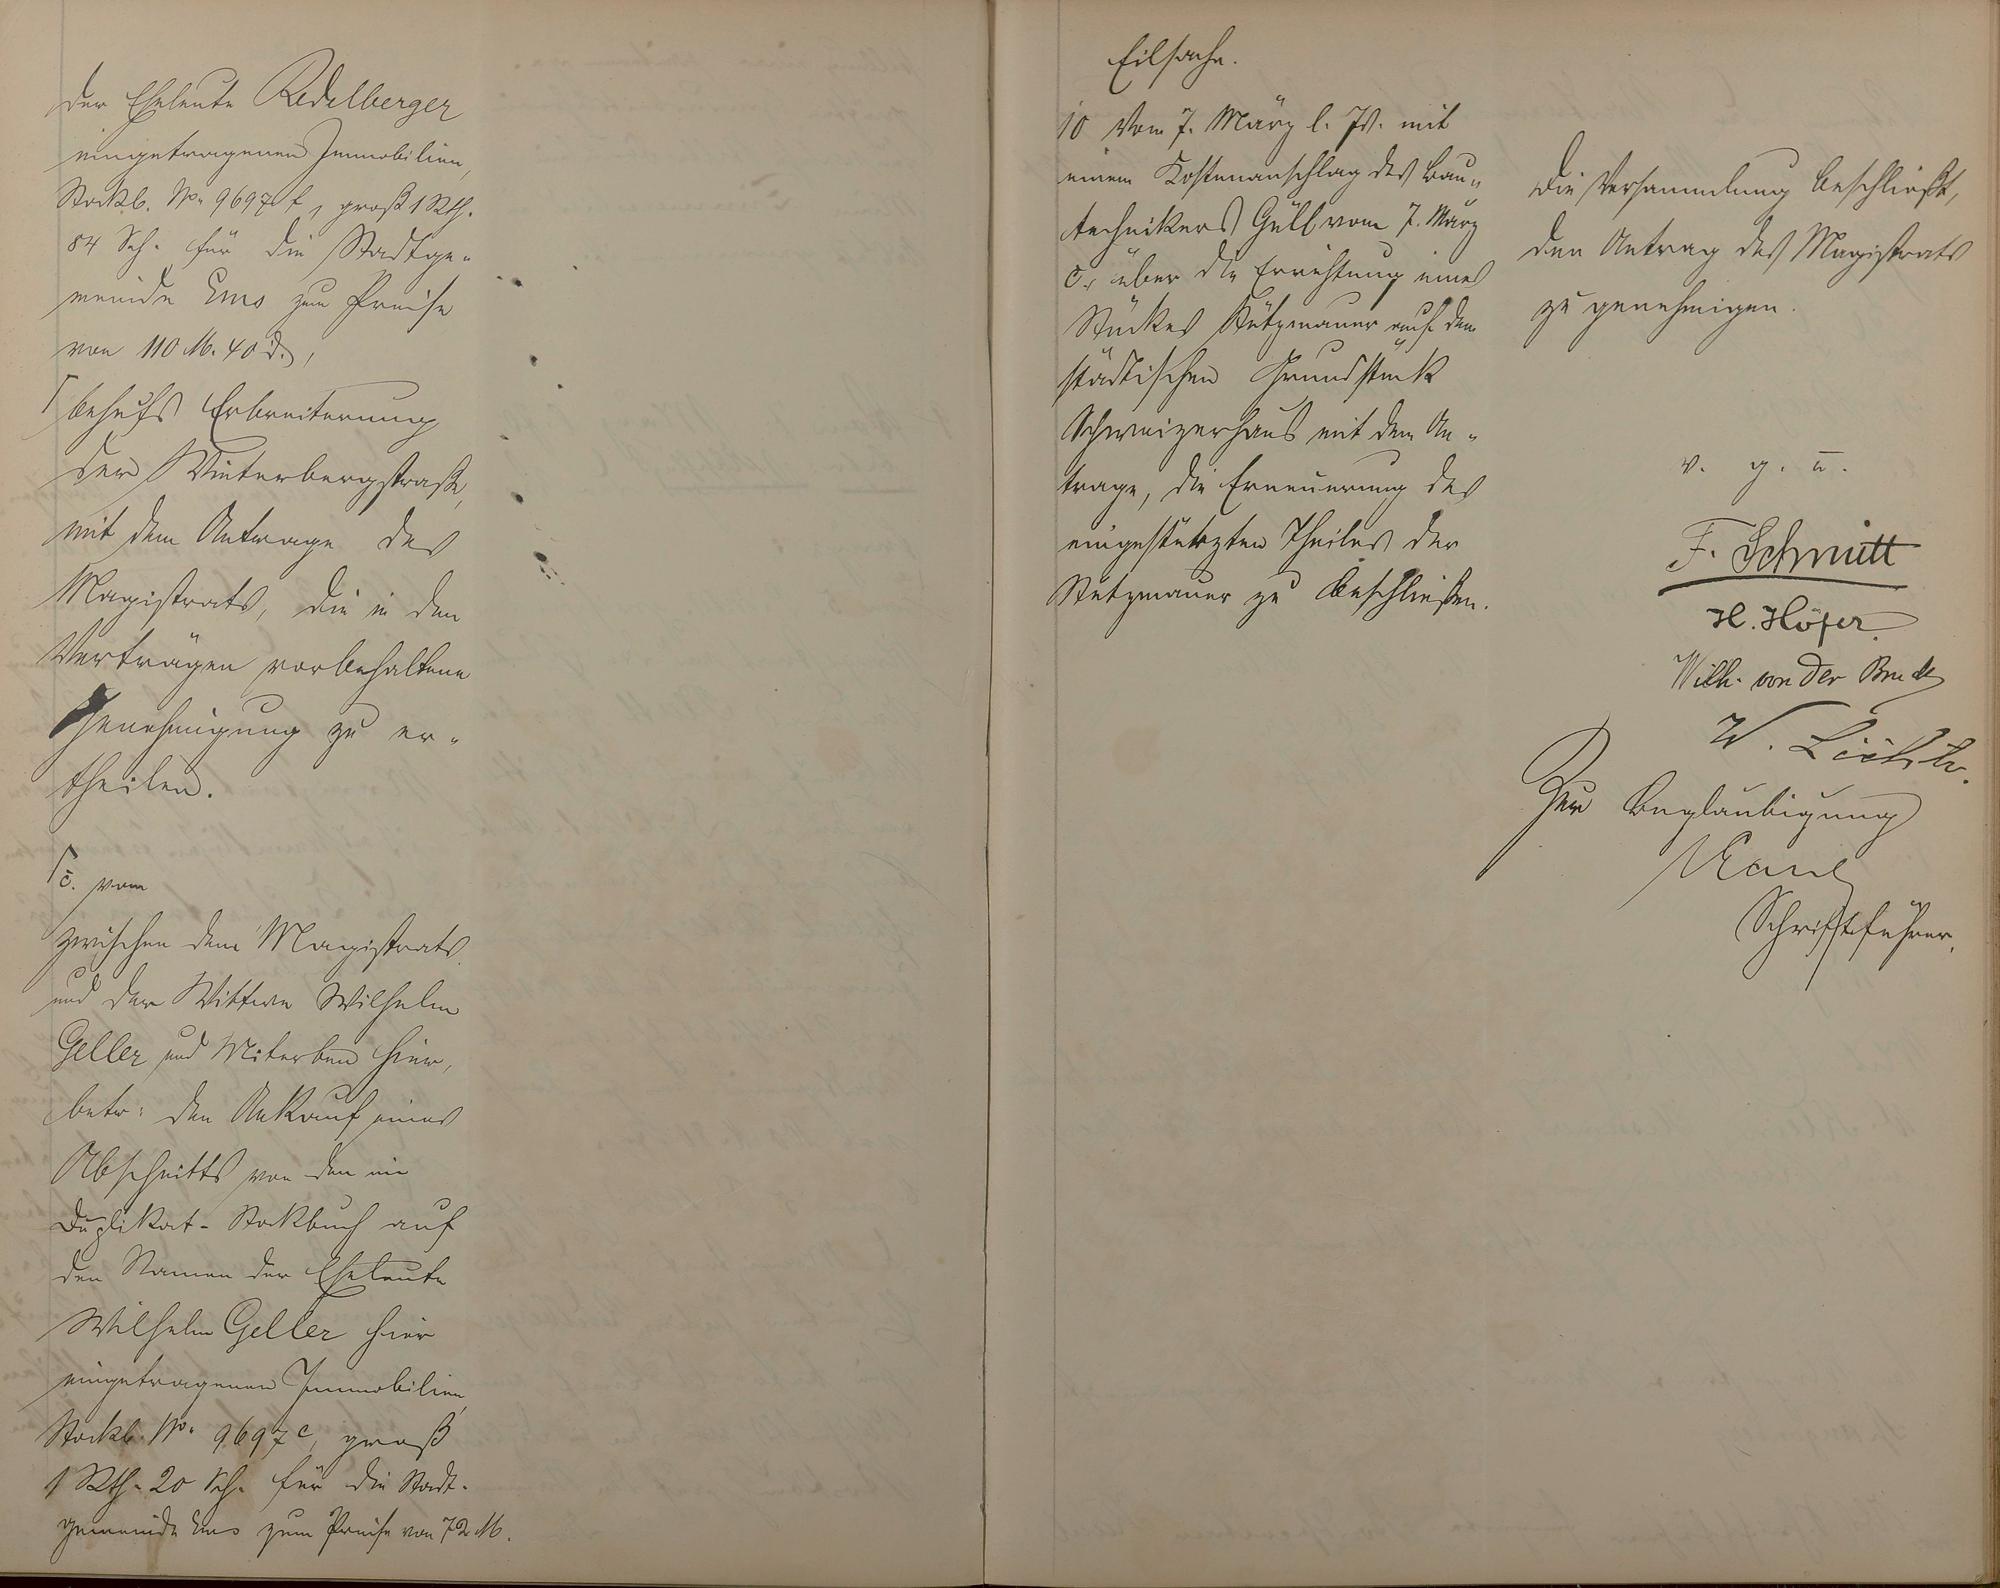 der Eheleute Redelberger
eingetragenen Immobilien,
Stockb. No. 9697 f, groß 1 Rth.
84 Sch. für die Stadtge-
meinde Ems zum Preise
von 110 M. 40 d.,
behufs Erbreiterung
der Winterbergstraße,
mit dem Antrage des
Magistrats, die in den
Verträgen vorbehaltene
Genehmigung zu er-
theilen.
c. vom
zwischen dem Magistrats
und der Wittwe Wilhelm
Geller und Miterben hier,
betr: den Ankauf eines
Abschnitts von den im
Duplikat-Stockbuch auf
den Namen der Eheleute
Wilhelm Geller hier
eingetragenen Immobilien,
Stockb. No. 9697 c, groß
1 Rth. 20 Sch. für die Stadt-
gemeinde Ems zum Preise von 72 M.
Eilsache.
10 Vom 7. März l. Js. mit
einem Kostenanschlag des Bau-
technikers Güll vom 7. März
c., über die Errichtung eines
Stückes Stützmauer auf dem
städtischen Grundstück
Schweizerhaus mit dem An-
trage, die Erneuerung des
eingestürzten Theiles der
Stützmauer zu beschließen.
Die Versammlung beschließt,
den Antrag des Magistrats
zu genehmigen.
v. g. u.
F. Schmitt
H. Höfer.
Wilh. von der Bruck
W.
Zur Beglaubigung
Schriftführer.